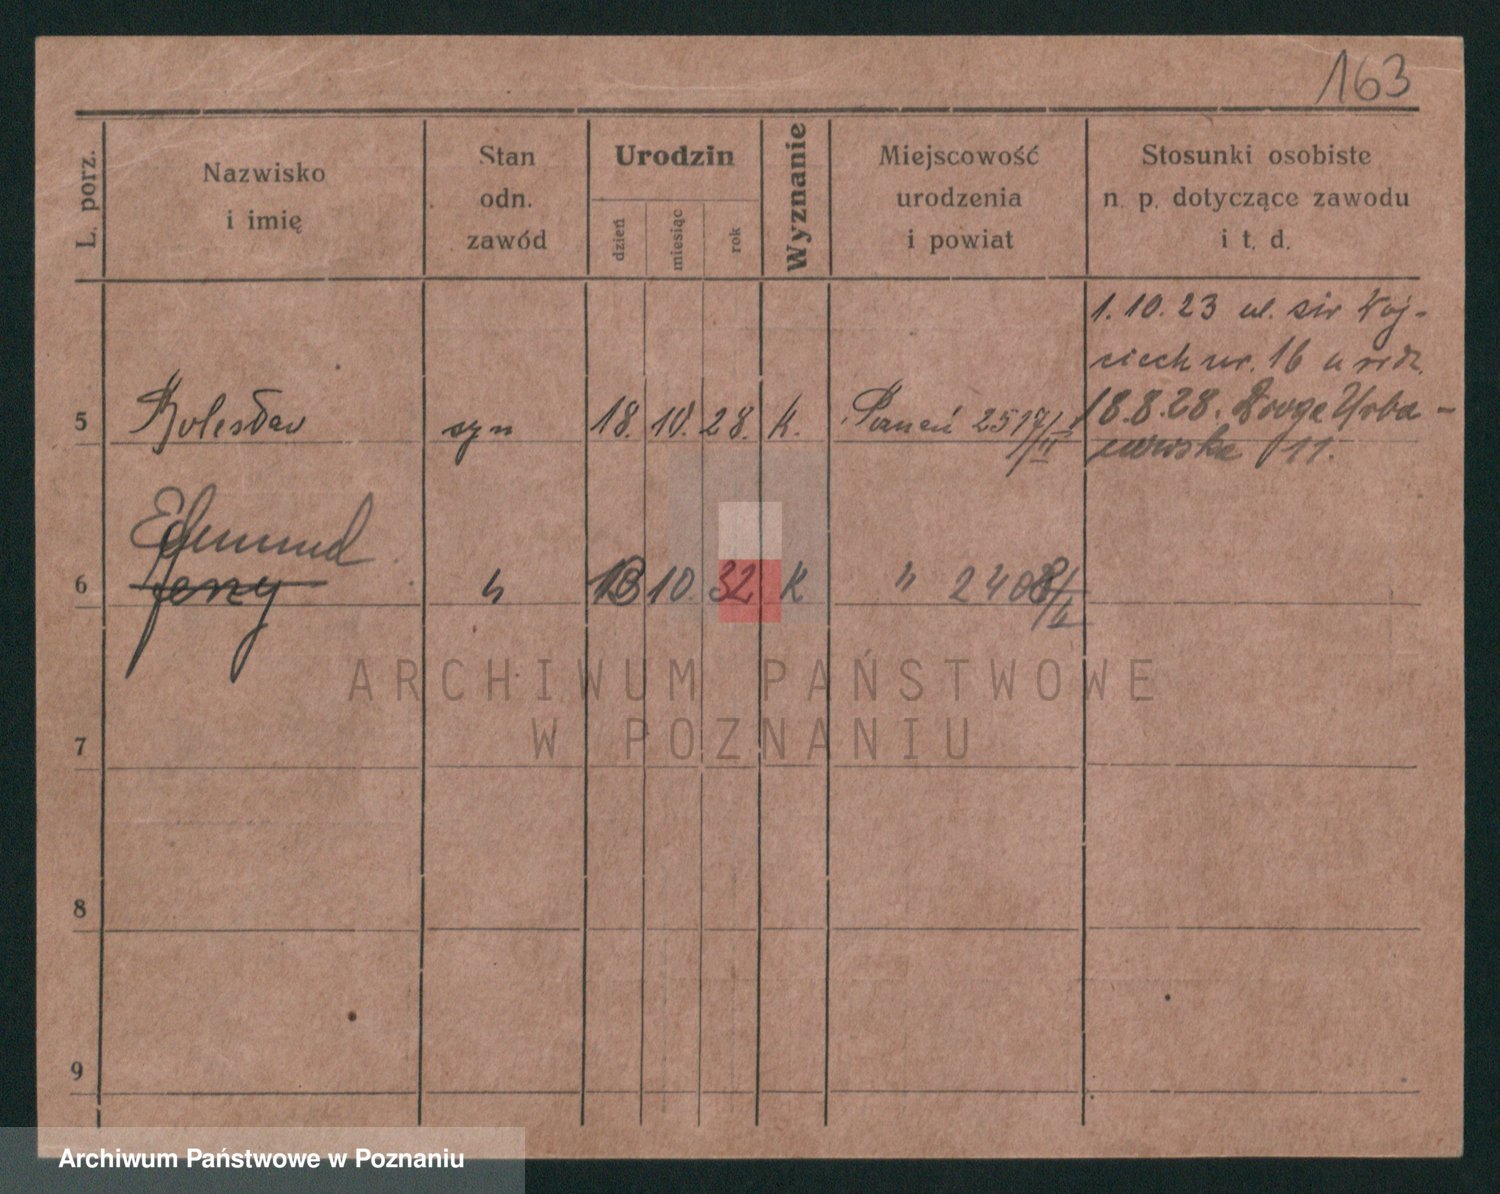 163
L. porz.
Nazwisko
i imię
Stan
odn.
zawód
Urodzin
dzień
miesiąc
rok
Wyznanie
Miejscowość
urodzenia
i powiat
Stosunki osobiste
n. p. dotyczące zawodu
i t. d.
5 Bolesław syn 18. 10. 28. K. Poznań 2517/
1. 10. 23 ul. Woj-
ciech nr. 16
18.8.28. Droga Urba-
nowska 11.
Edmund
6 Jerzy " 10 32 K "
7
8
9
ARCHIWUM PAŃSTWOWE
W POZNANIU
Archiwum Państwowe w Poznaniu